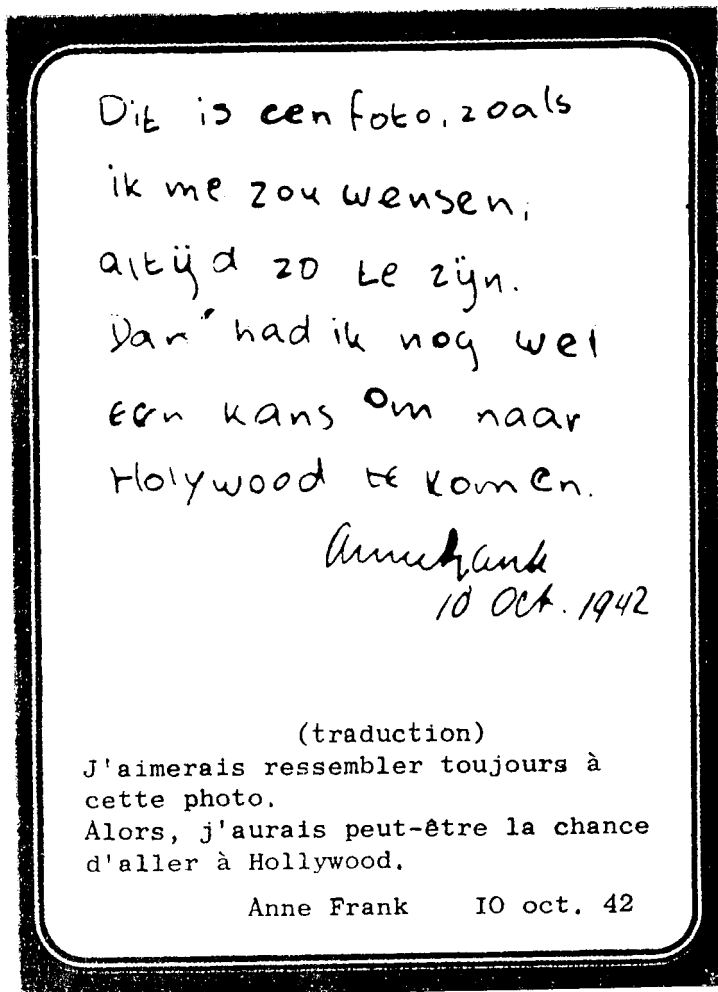 Dit is een foto, zoals
ik me zou wensen,
altijd zo te zijn.
Dan had ik nog wel
een kans om naar
Holywood te komen.
Annefrank
10 Oct. 1942
(traduction)
J'aimerais ressembler toujours à
cette photo.
Alors, j'aurais peut-être la chance
d'aller à Hollywood.
Anne Frank IO oct. 42